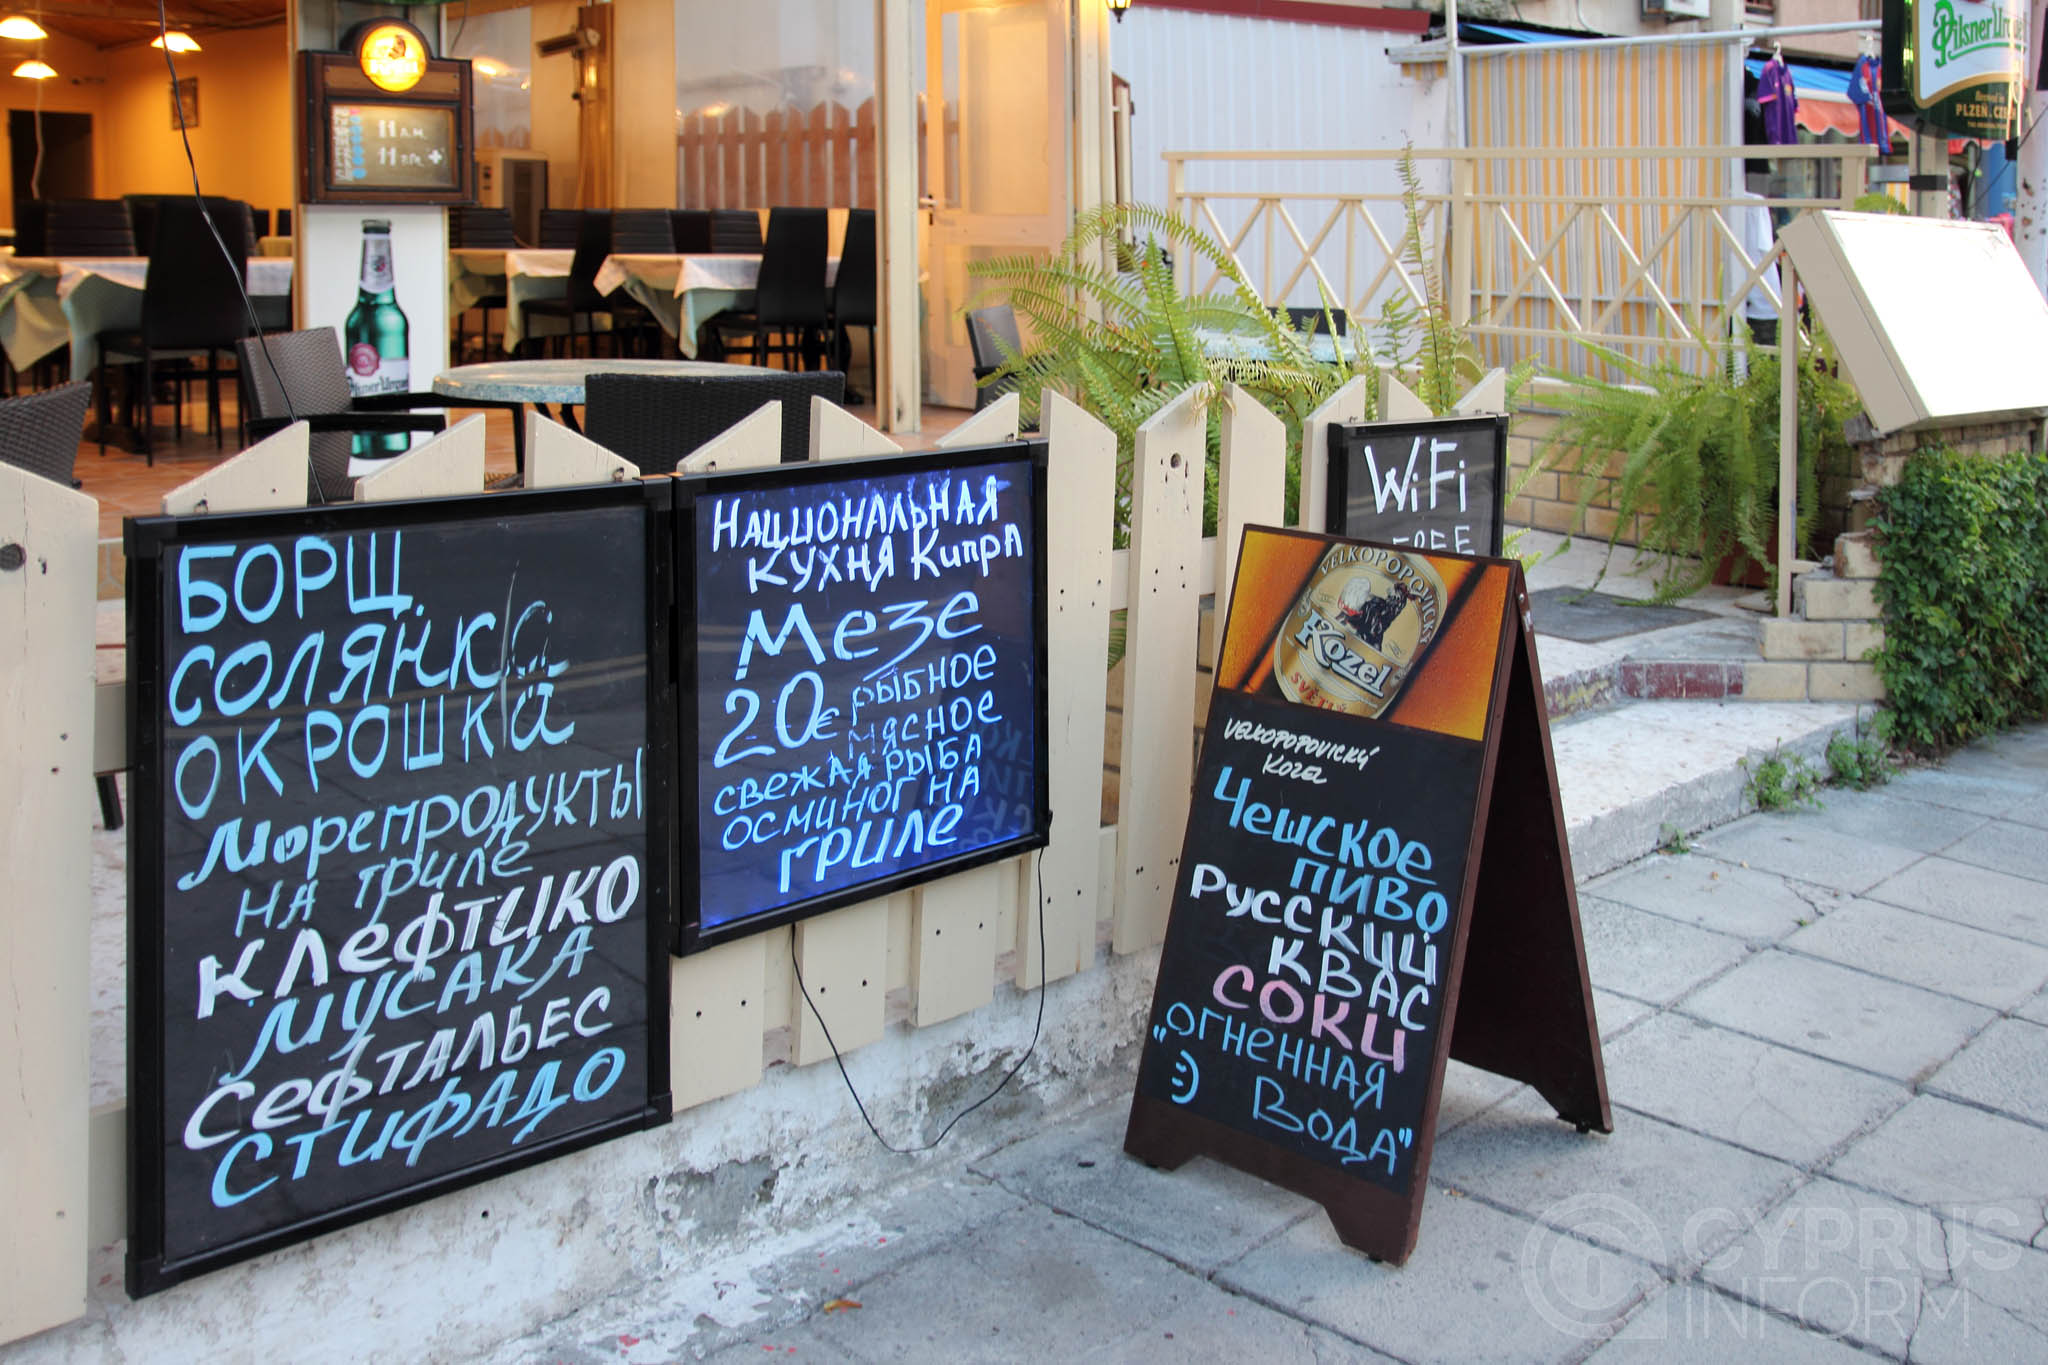 11 A.M.
11 P.M. "+"
Pilsner Urquell
Brewed in
PLZEŇ, CZECH
Pilsner Urquell
БОРЩ
СОЛЯНКа
ОКРОШКа
МОРЕПРОДУКТЫ
НА ГРИЛЕ
КЛЕФТИКО
МУСАКА
СЕФТАЛЬЕС
СТИФАДО
НАЦИОНАЛЬНАЯ
КУХНЯ Кипра
МЕЗЕ
20€ РЫБНОЕ
МЯСНОЕ
СВЕЖАЯ РЫБА
ОСМИНОГ НА
ГРИЛЕ
WiFi
FREE
VELKOPOPOVICKÝ
Kozel
SVĚTLÝ
VELKOPOPOVICKÝ
KOZEL
ЧЕШСКОЕ
ПИВО
РУССКИЙ
КВАС
СОКИ
„ОГНЕННАЯ
:) ВОДА"
CYPRUS
INFORM